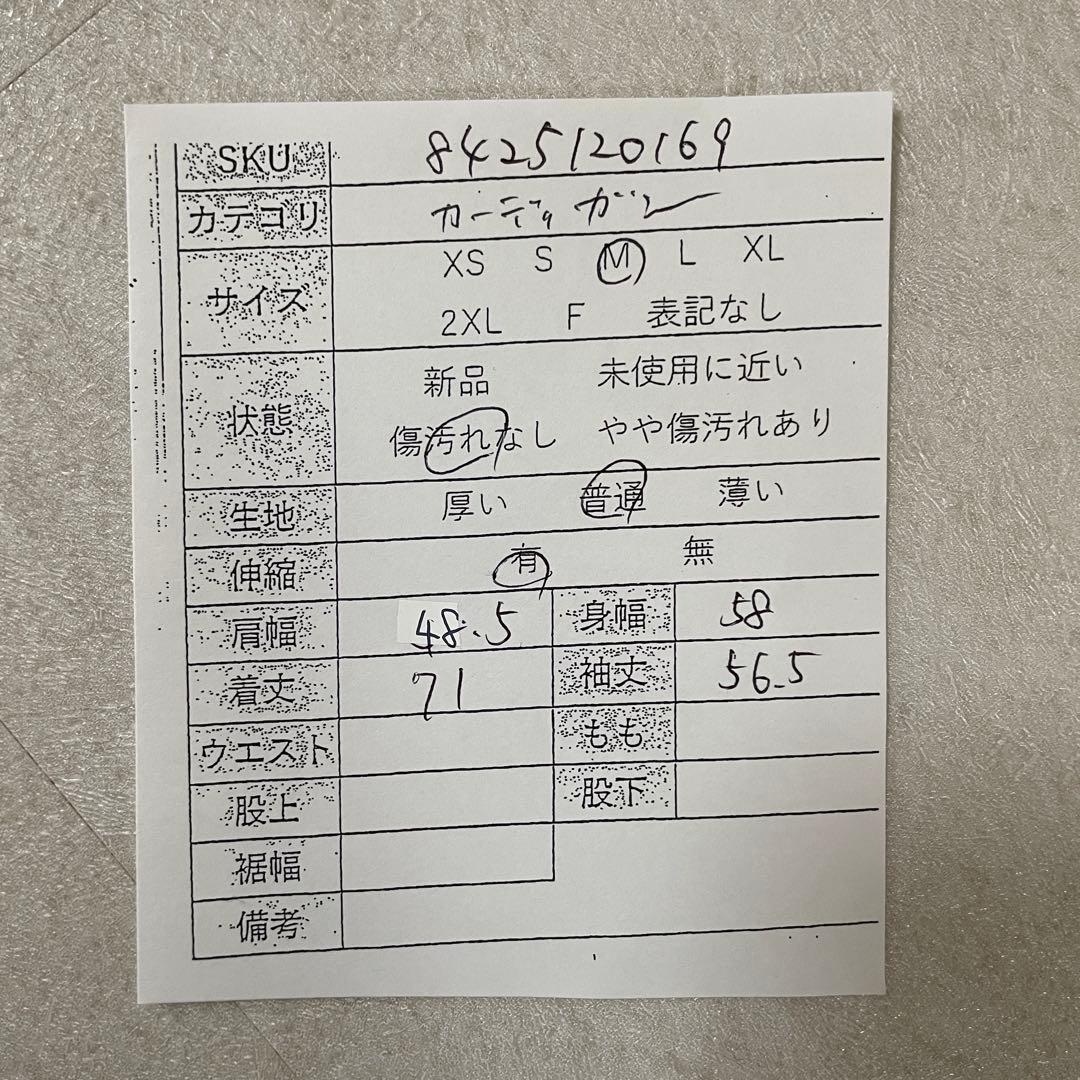 SKU 8425120169
カテゴリ カーディガン
サイズ XS S M L XL
2XL F 表記なし
状態 新品 未使用に近い
傷汚れなし やや傷汚れあり
生地 厚い 普通 薄い
伸縮 有 無
肩幅 48.5 身幅 58
着丈 71 袖丈 56.5
ウエスト もも
股上 股下
裾幅
備考